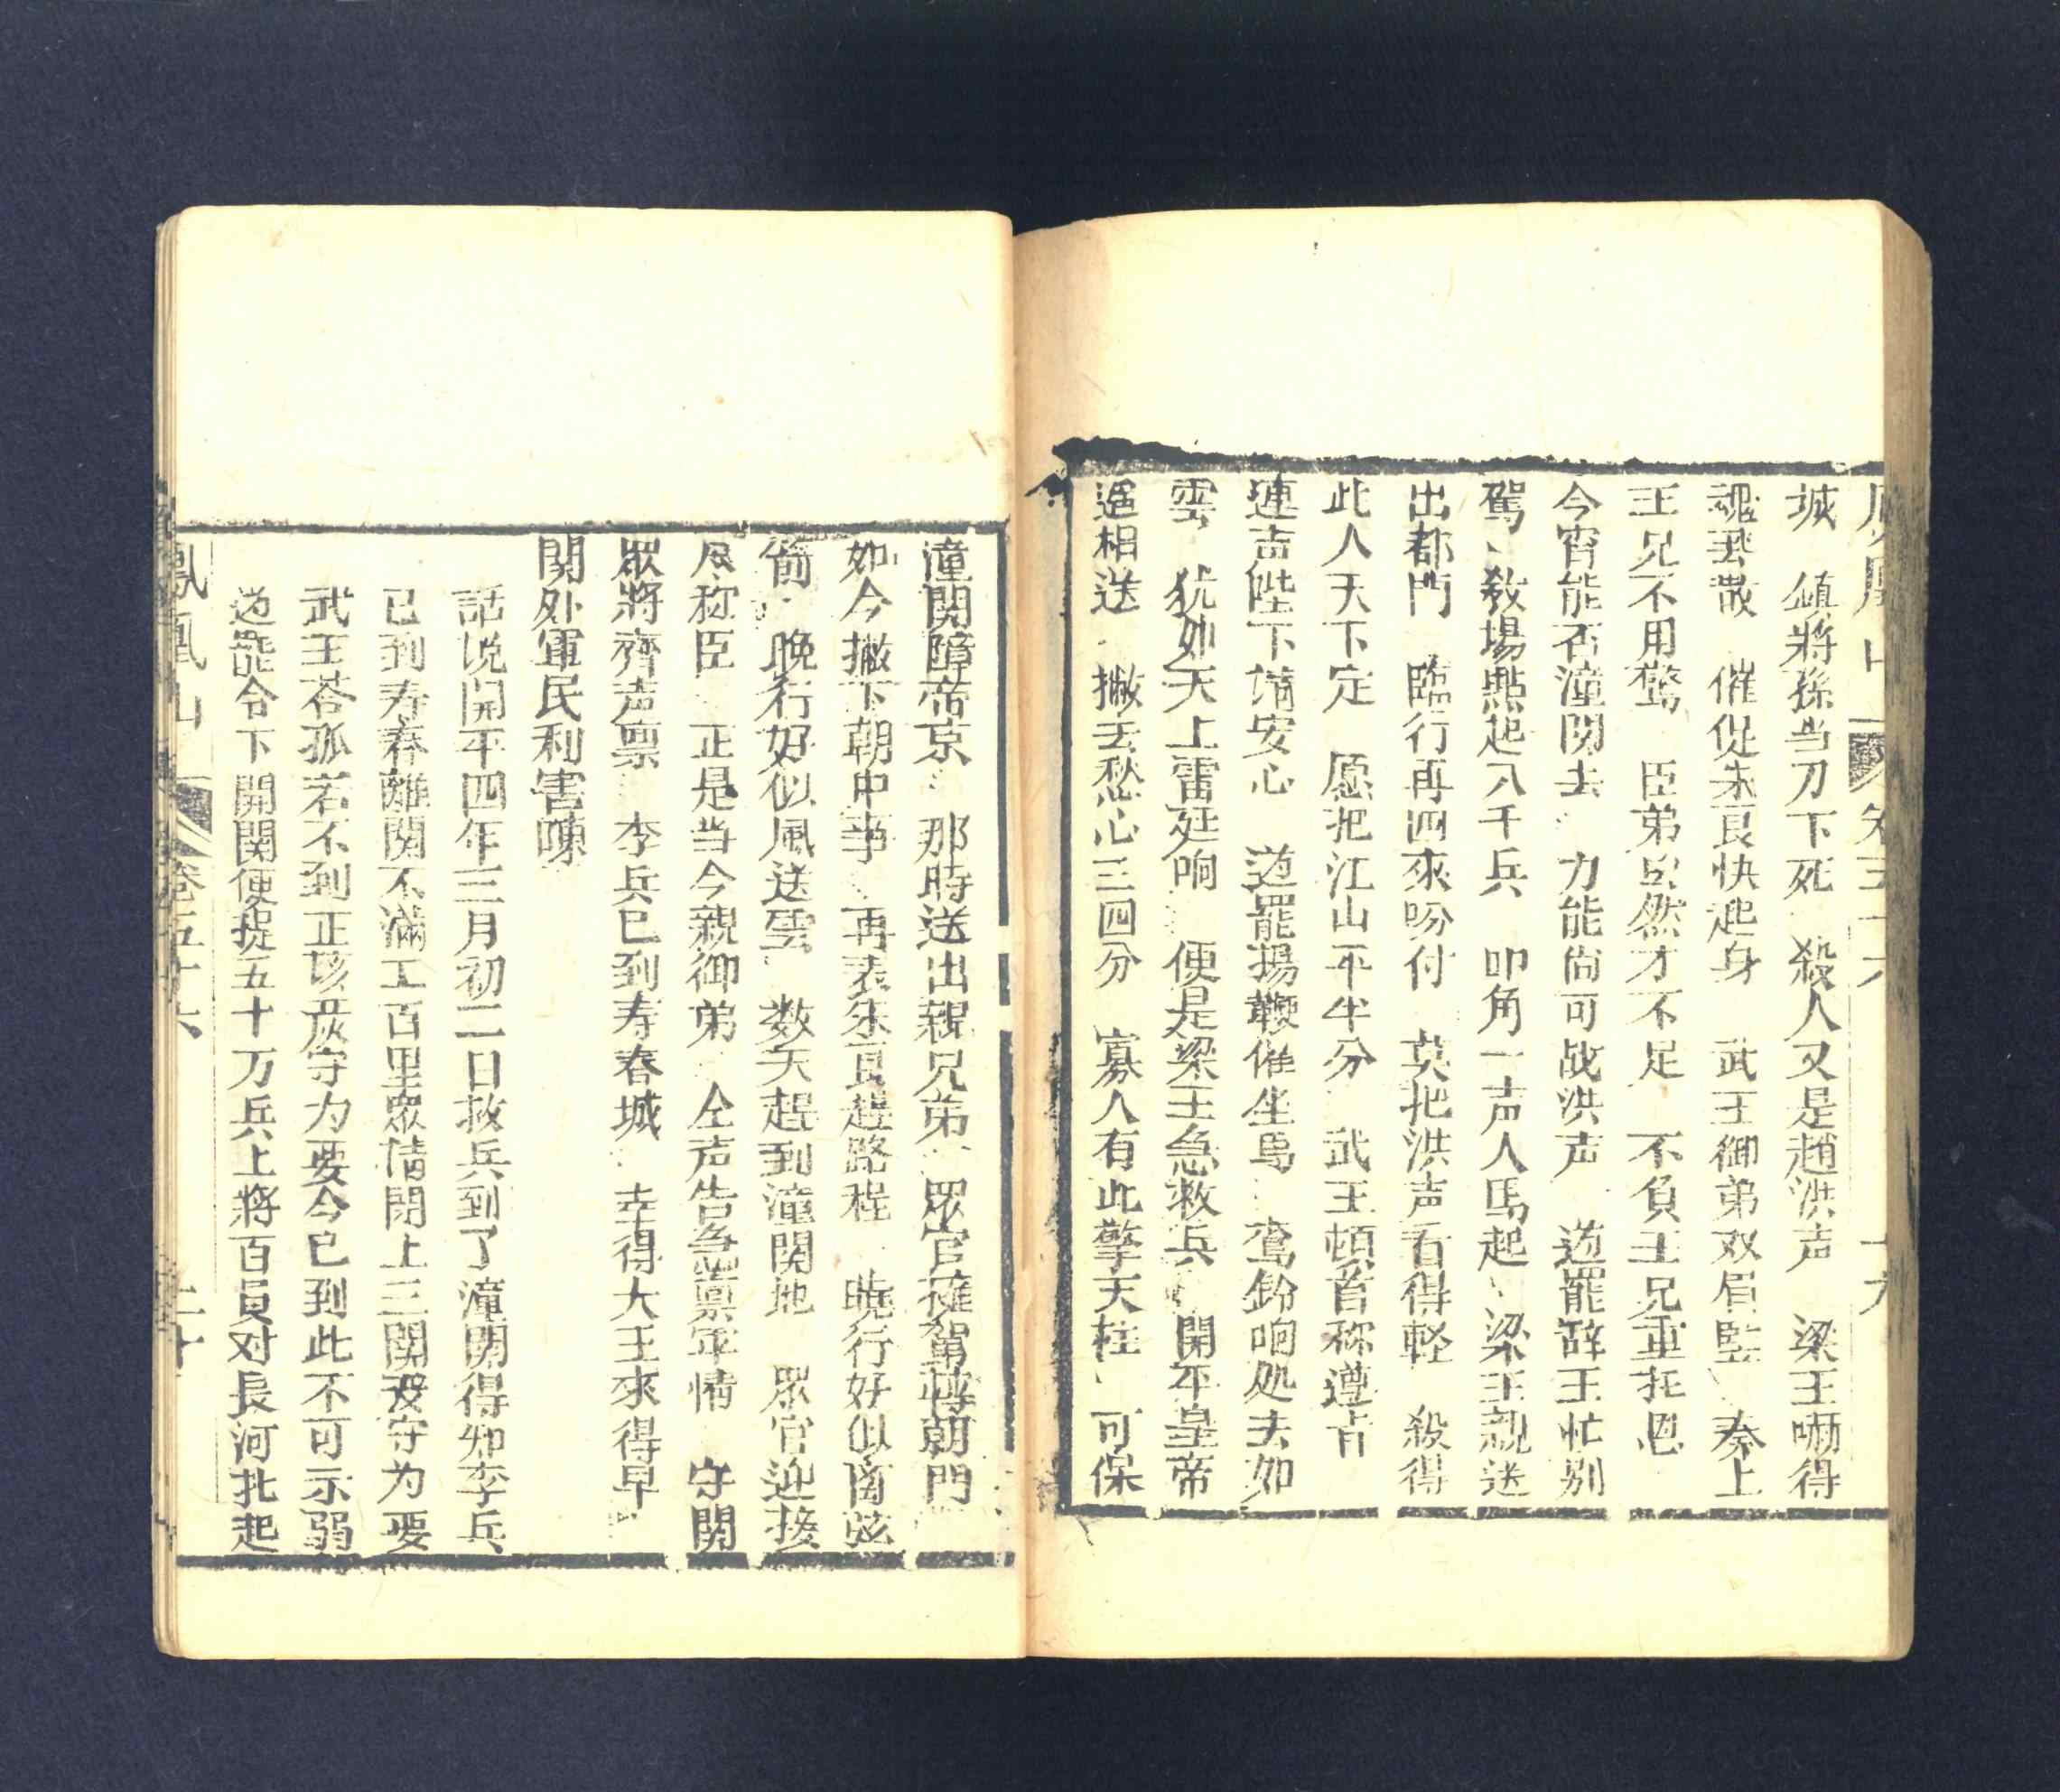 城　鎮將孫当刀下死　殺人又是趙洪声　梁王嚇得
魂雲散　催促朱艮快起身　武王御弟双眉監　奏上
王兄不用驚　臣弟虽然才不足　不負王兄重托恩
今宵能否潼関去　力能尚可战洪声　道罷辞王忙别
駕　敎場點起八千兵　叩角一声人馬起　梁王親送
出都門　臨行再四來吩付　莫把洪声看得軽　殺得
此人天下定　愿把江山平半分　武王頓首称遵旨
連声陛下請安心　道罷揚鞭催坐馬　鸾鈴响处去如
雲　犹如天上雷廷响　便是梁王急救兵　開平皇帝
相送　撇去愁心三四分　寡人有此擎天柱　可保
潼関障帝京　那時送出親兄弟　眾官擁駕轉朝門
如今撇下朝中事　再表朱艮趕路程　曉行好似离弦
箭　晚行好似風送雲　数天趕到潼関地　眾官迎接
尽称臣　正是当今親御弟　仝声告急禀軍情　守関
眾將齊声禀　李兵已到寿春城　幸得大王來得早
関处軍民利害陳
話說開平四年三月初二日救兵到了潼関得知李兵
已到寿春離関不滿二百里眾情閉上三関設守为要
武王荅孤若不到正该严守力要今已到此不可示弱
道罷令下開関便提五十万兵上將百員对長河扎起
鳳凰山　卷五十六　二十